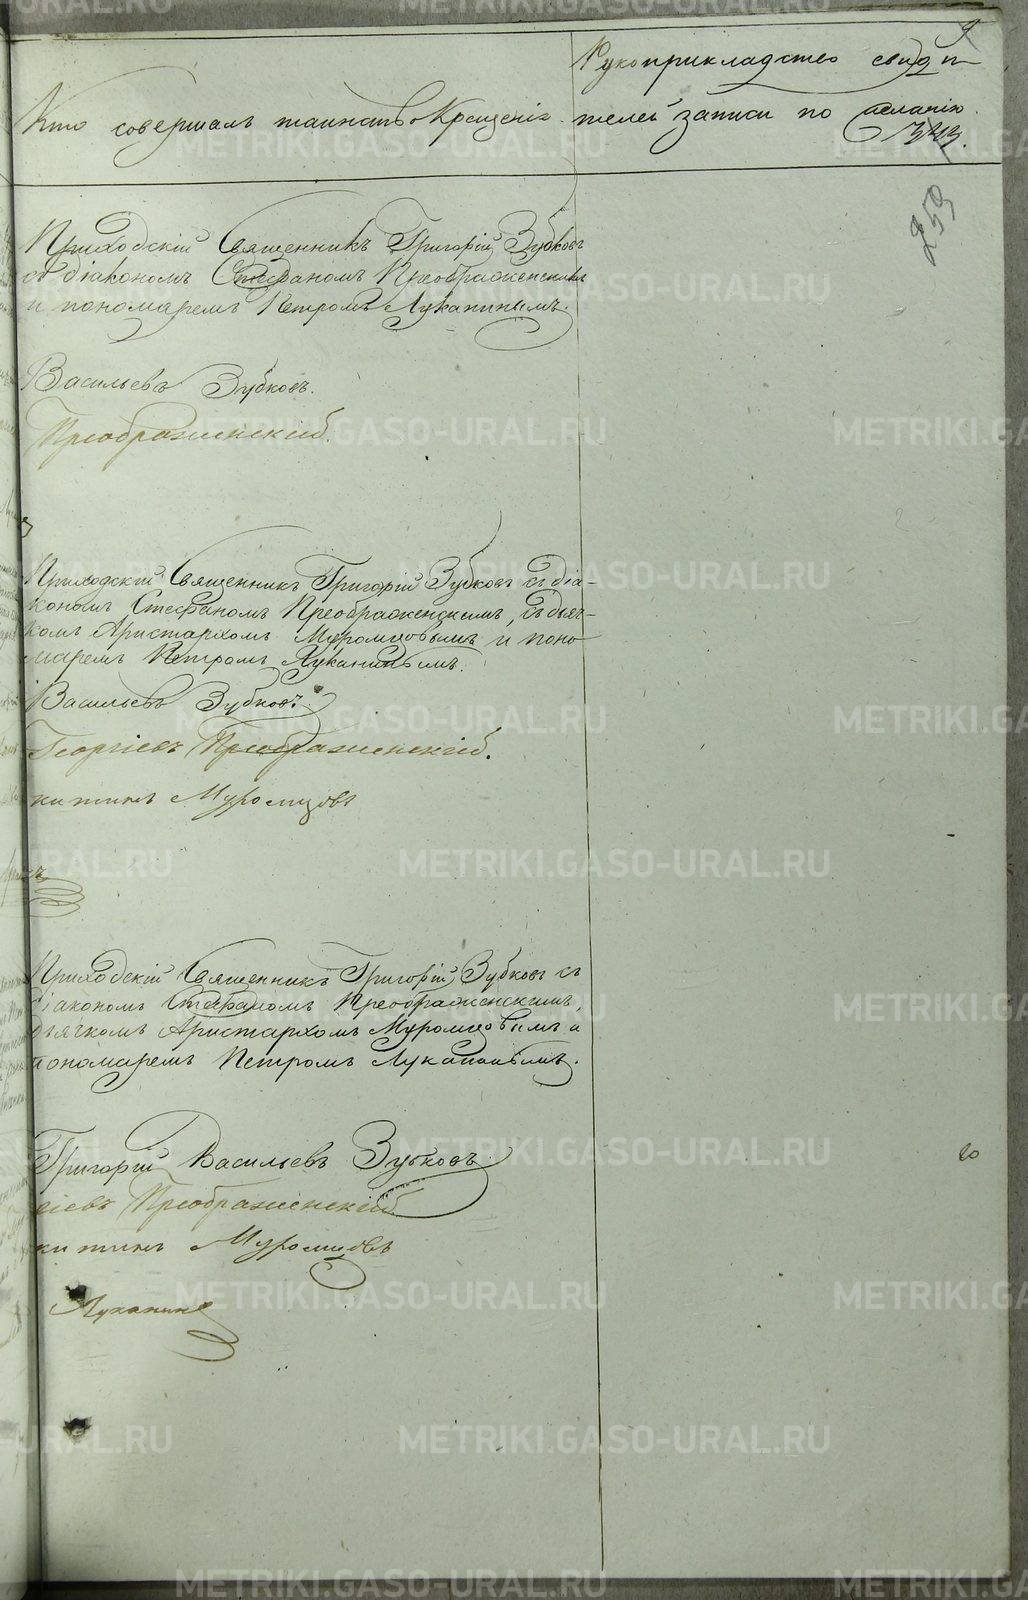 9
Рукоприкладство свидѣ-
Кто совершалъ таинство Крещенія.
телей записи по желанію.
259
Приходскій Священникъ Григорій Зубковъ
съ діакономъ Стефаномъ Преображенскимъ
и пономаремъ Петромъ Луканинымъ.
Васильевъ Зубковъ.
Преображенскій.
Приходскій Священникъ Григорій Зубковъ съ діа-
кономъ Стефаномъ Преображенскимъ, съ дьяч-
комъ Аристархомъ Муромцовымъ и поно-
маремъ Петромъ Луканинымъ.
Васильевъ Зубковъ.
Георгіевъ Преображенскій.
китинъ Муромцовъ
Приходскій Священникъ Григорій Зубковъ съ
діакономъ Стефаномъ Преображенскимъ,
дьячкомъ Аристархомъ Муромцовымъ и
пономаремъ Петромъ Луканинымъ.
Григорій Васильевъ Зубковъ
гіевъ Преображенскій
китинъ Муромцовъ
Луканинъ
METRIKI.GASO-URAL.RU